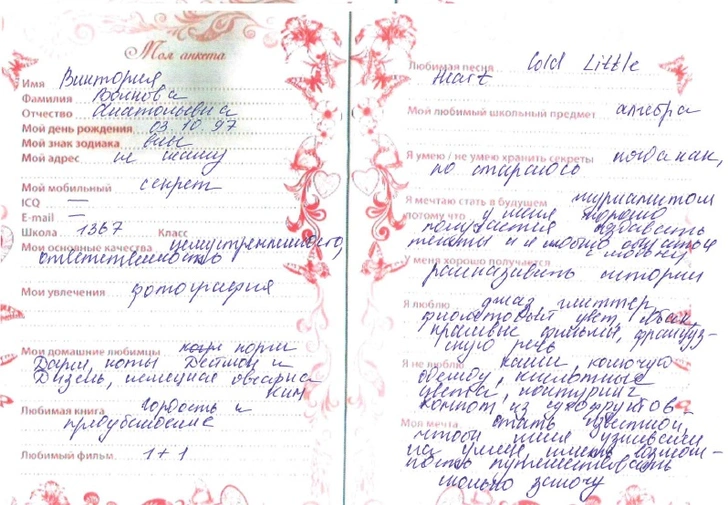 Моя анкета
Имя Виктория
Фамилия Волкова
Отчество Анатольевна
Мой день рождения 03.10.97
Мой знак зодиака весы
Мой адрес не скажу
Мой мобильный секрет
ICQ —
E-mail —
Школа 1367 Класс
Мои основные качества целеустремленность,
ответственность
Мои увлечения фотография
Мои домашние любимцы корги
Дарил, коты и
Дизель, немецкая овчарка
Ким
Любимая книга гордость и
предубеждение
Любимый фильм 1+1
Любимая песня Cold Little
Heart
Мой любимый школьный предмет алгебра
Я умею / не умею хранить секреты когда как,
но стараюсь
Я мечтаю стать в будущем журналистом
потому что у меня хорошо
получается
тексты и я люблю общаться
с людьми
У меня хорошо получается
рассказывать истории
Я люблю джаз, глиттер,
фиолетовый цвет,
красивые фамилии, француз-
скую речь
Я не люблю каши, колючую
одежду, клетчатые
цветы, контуринг,
компот из сухофруктов
Моя мечта стать известной,
чтобы меня узнавали
на улице, иметь возмож-
ность путешествовать
только захочу